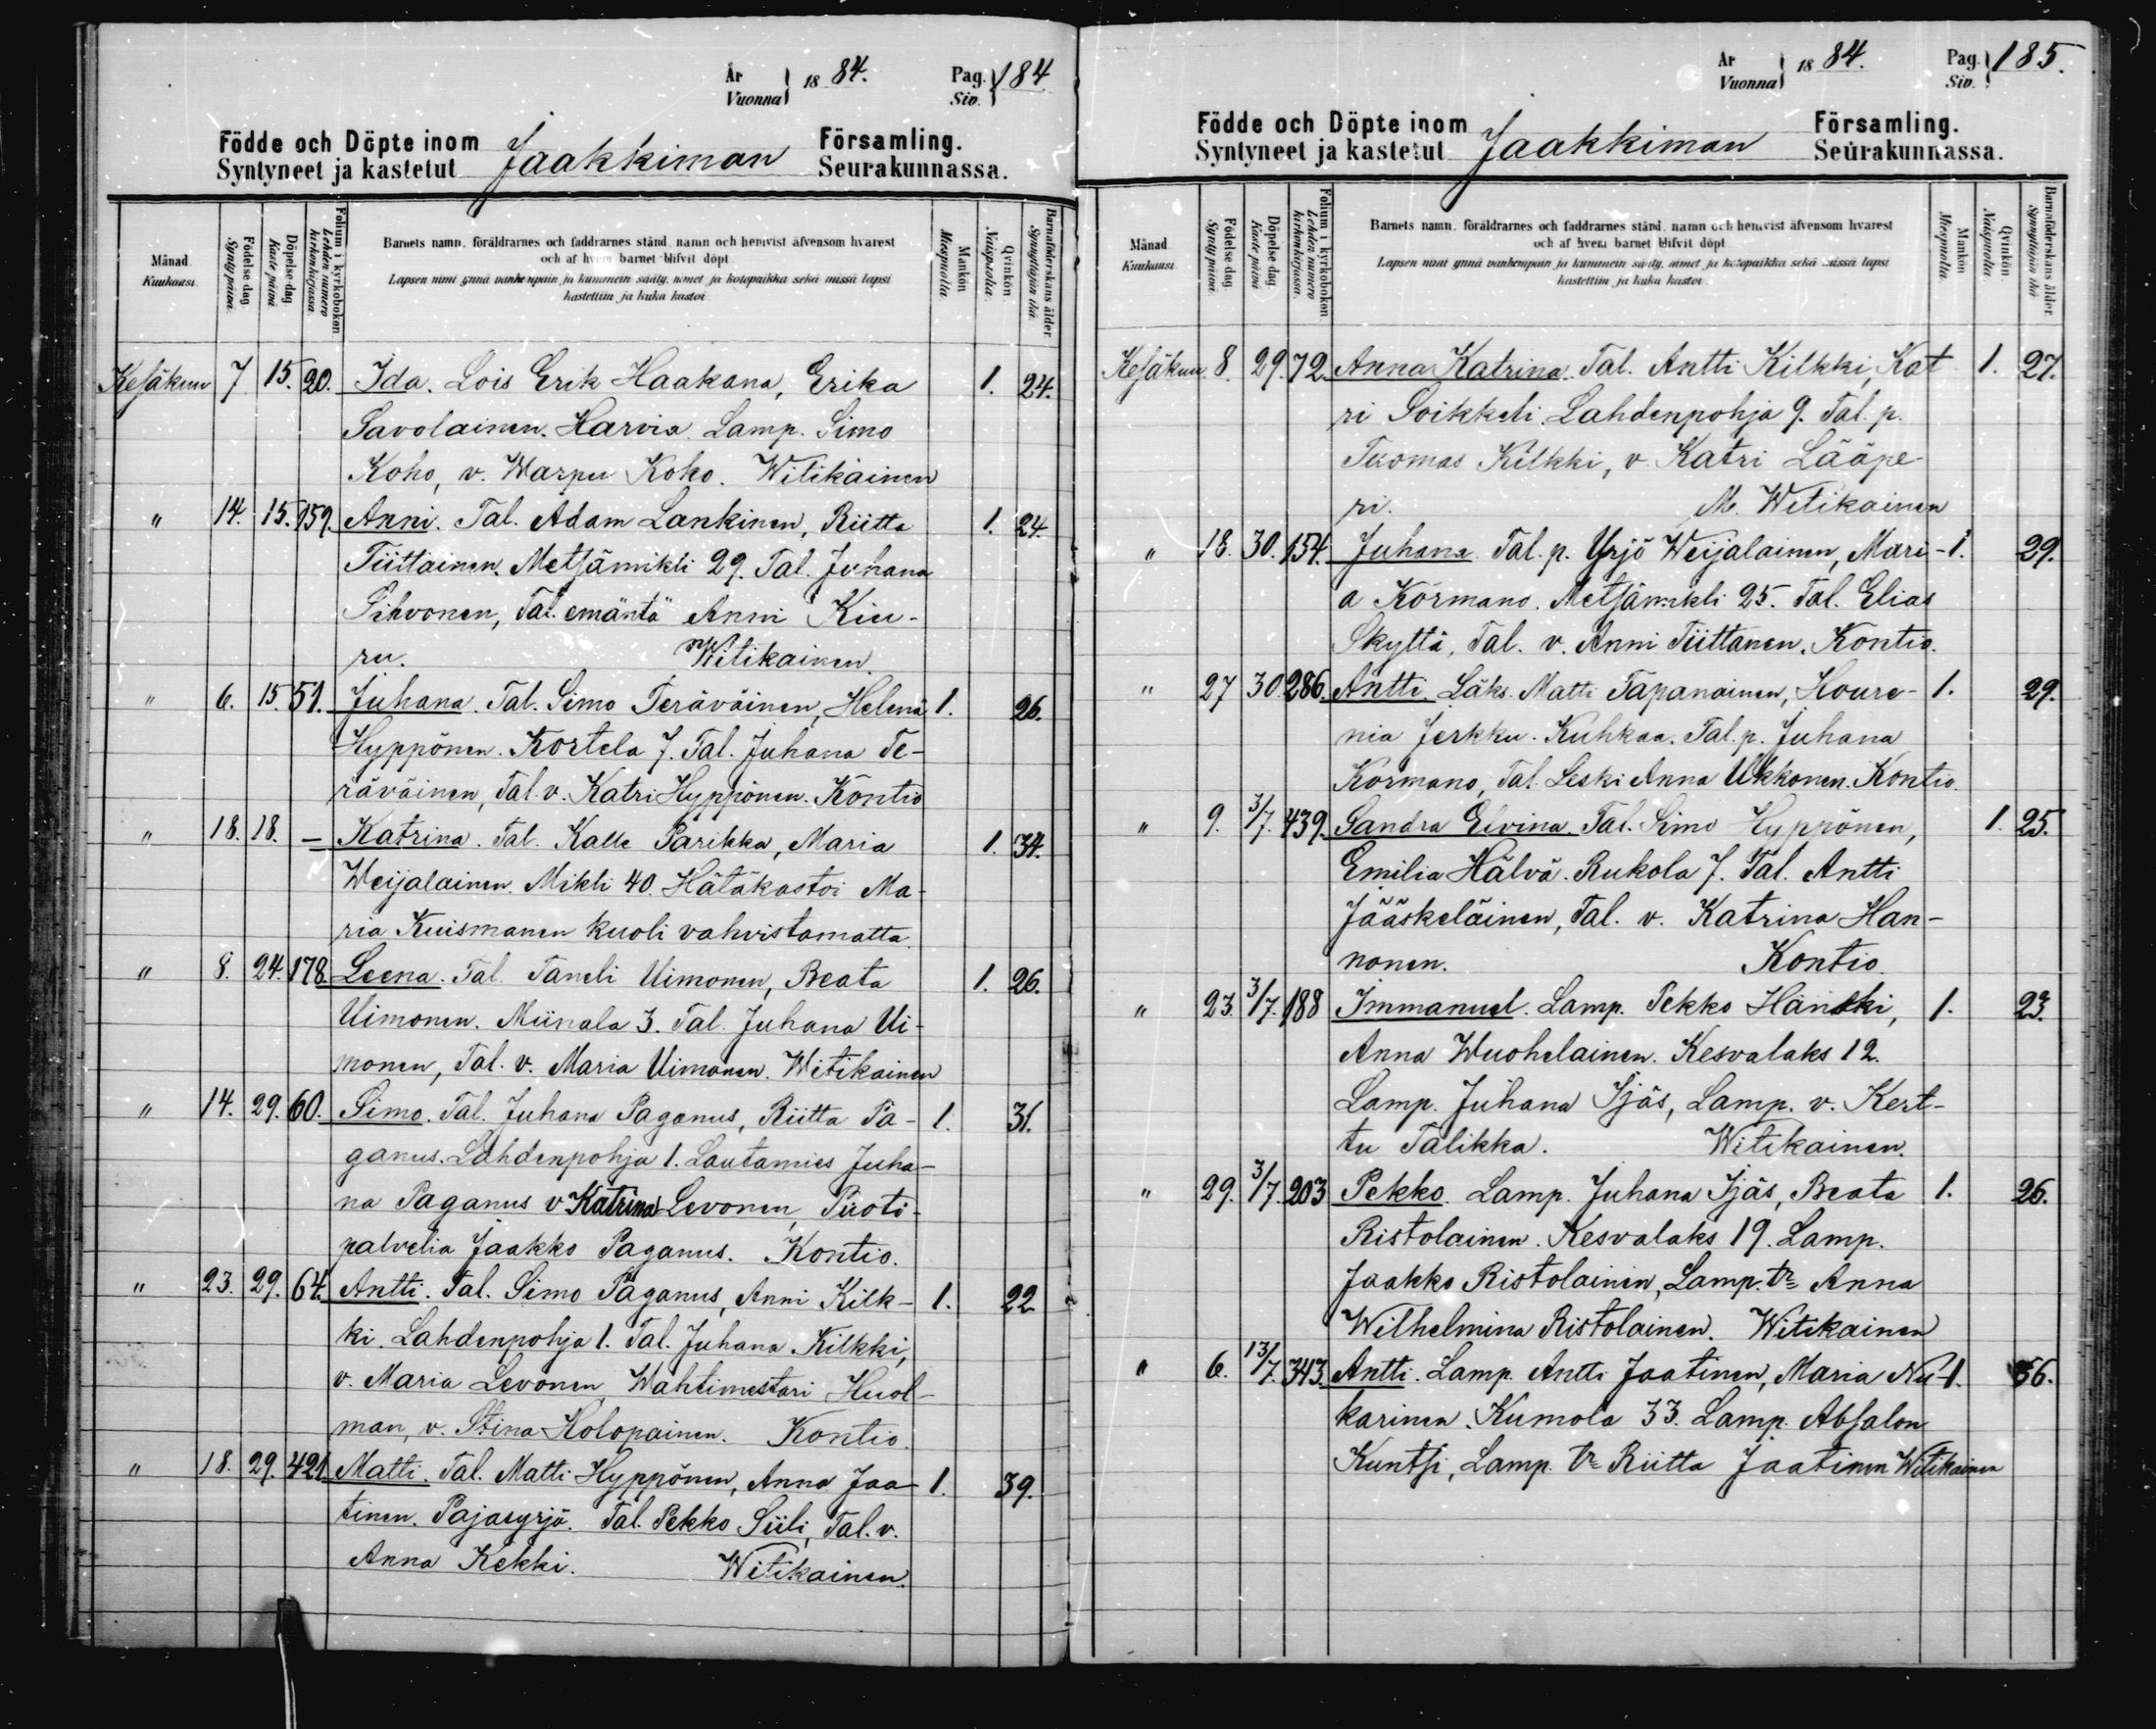 År
Vuonna } 1884. Pag. Siv. } 184
Födde och Döpte inom Jaakkiman Församling.
Syntyneet ja kastetut Seurakunnassa.
Månad. Kuukausi. Födelse dag. Synty päivä. Döpelse dag. Kaste päivä. Folium i kyrkoboken Lehden numero kirkonkirjassa. Barnets namn, föräldrarnes och faddrarnes stånd, namn och hemvist äfvensom hvarest
och af hvem barnet blifvit döpt.
Lapsen nimi ynnä vanhempain ja kummein sääty, nimet ja kotopaikka sekä missä lapsi
kastettiin ja kuka kastoi. Mankön Miespuolia. Qvinkön Naispuolia. Barnaföderskans ålder. Synnyttäjän ikä.
Kesäkuu 7 15. 20. Ida. Lois Erik Haakana, Erika 1. 24.
Savolainen. Harvia. Lamp. Simo
Koho, v. Warpu Koho. Witikainen
" 14. 15. 159. Anni. Tal. Adam Lankinen, Riitta 1. 24.
Tiittainen. Metsämikli 29. Tal. Juhana
Pihvonen, Tal. emäntä Anni Kiu-
ru. Witikainen.
" 6. 15. 51. Juhana. Tal. Simo Teräväinen, Helena 1. 26.
Hyppönen. Kortela 7. Tal. Juhana Te-
räväinen, Tal. v. Katri Hyppönen. Kontio
" 18. 18. — Katrina. Tal. Kalle Parikka, Maria 1. 34.
Weijalainen. Mikli 40. Hätäkastoi Ma-
ria Kuismanen kuoli vahvistamatta.
" 8. 24. 178. Leena. Tal. Taneli Uimonen, Beata 1. 26.
Uimonen. Miinala 3. Tal. Juhana Ui-
monen, Tal. v. Maria Uimonen. Witikainen
" 14. 29. 60. Simo. Tal. Juhana Paganus, Riitta Pa- 1. 31.
ganus. Lahdenpohja 1. Lautamies Juha-
na Paganus v Katrina Levonen,
palvelia Jaakko Paganus. Kontio.
" 23. 29. 64. Antti. Tal. Simo Paganus, Anni Kilk- 1. 22
ki. Lahdenpohja 1. Tal. Juhana Kilkki,
v. Maria Levonen, Wahtimestari Huol-
man, v. Stina Holopainen. Kontio.
" 18. 29. 421. Matti. Tal. Matti Hyppönen, Anna Jaa- 1. 39.
tinen. Pajasyrjä. Tal. Pekko Siili, Tal. v.
Anna Kekki. Witikainen.
År
Vuonna } 1884. Pag. Siv. } 185.
Födde och Döpte inom Jaakkiman Församling.
Syntyneet ja kastetut Seurakunnassa.
Månad. Kuukausi. Födelse dag. Synty päivä. Döpelse dag. Kaste päivä. Folium i kyrkoboken Lehden numero kirkonkirjassa. Barnets namn, föräldrarnes och faddrarnes stånd, namn och hemvist äfvensom hvarest
och af hvem barnet blifvit döpt.
Lapsen nimi ynnä vanhempain ja kummein sääty, nimet ja kotopaikka sekä missä lapsi
kastettiin ja kuka kastoi. Mankön Miespuolia. Qvinkön Naispuolia. Barnaföderskans ålder. Synnyttäjän ikä.
Kesäkuu. 8. 29. 72. Anna Katrina. Tal. Antti Kilkki, Kat 1. 27.
ri Soikkeli. Lahdenpohja 9. Tal. p.
Tuomas Kilkki, v. Katri Lääpe-
ri. M. Witikainen
" 18. 30. 154. Juhana. Tal. p. Yrjö Weijalainen, Mari- 1. 29.
a Kormano. Metsämikli 25. Tal. Elias
Skyttä, Tal. v. Anni Tiittanen. Kontio.
" 27 30. 286. Antti. Läks. Matti Tapanainen, Houre- 1. 29.
nia Jerkku. Kuhkaa. Tal. p. Juhana
Kormano, Tal. Leski Anna Ukkonen. Kontio.
" 9. 3/7. 439. Sandra Elvina. Tal. Simo Hyppönen, 1. 25.
Emilia Hälvä. Rukola 7. Tal. Antti
Jääskeläinen, Tal. v. Katrina Han-
nonen. Kontio.
" 23. 3/7. 188 Immanuel. Lamp. Pekko Hänski, 1. 23.
Anna Wuohelainen. Kesvalaks 12.
Lamp. Juhana Ijäs, Lamp. v. Kert-
tu Talikka. Witikainen.
" 29. 3/7. 203 Pekko. Lamp. Juhana Ijäs, Beata 1. 26.
Ristolainen. Kesvalaks 19. Lamp.
Jaakko Ristolainen, Lamp. tr Anna
Wilhelmina Ristolainen. Witikainen
" 6. 13/7. 343. Antti. Lamp. Antti Jaatinen, Maria Nu- 1. 36.
karinen. Kumola 33. Lamp. Absalon
Kuntsi, Lamp. tr Riitta Jaatinen Witikainen